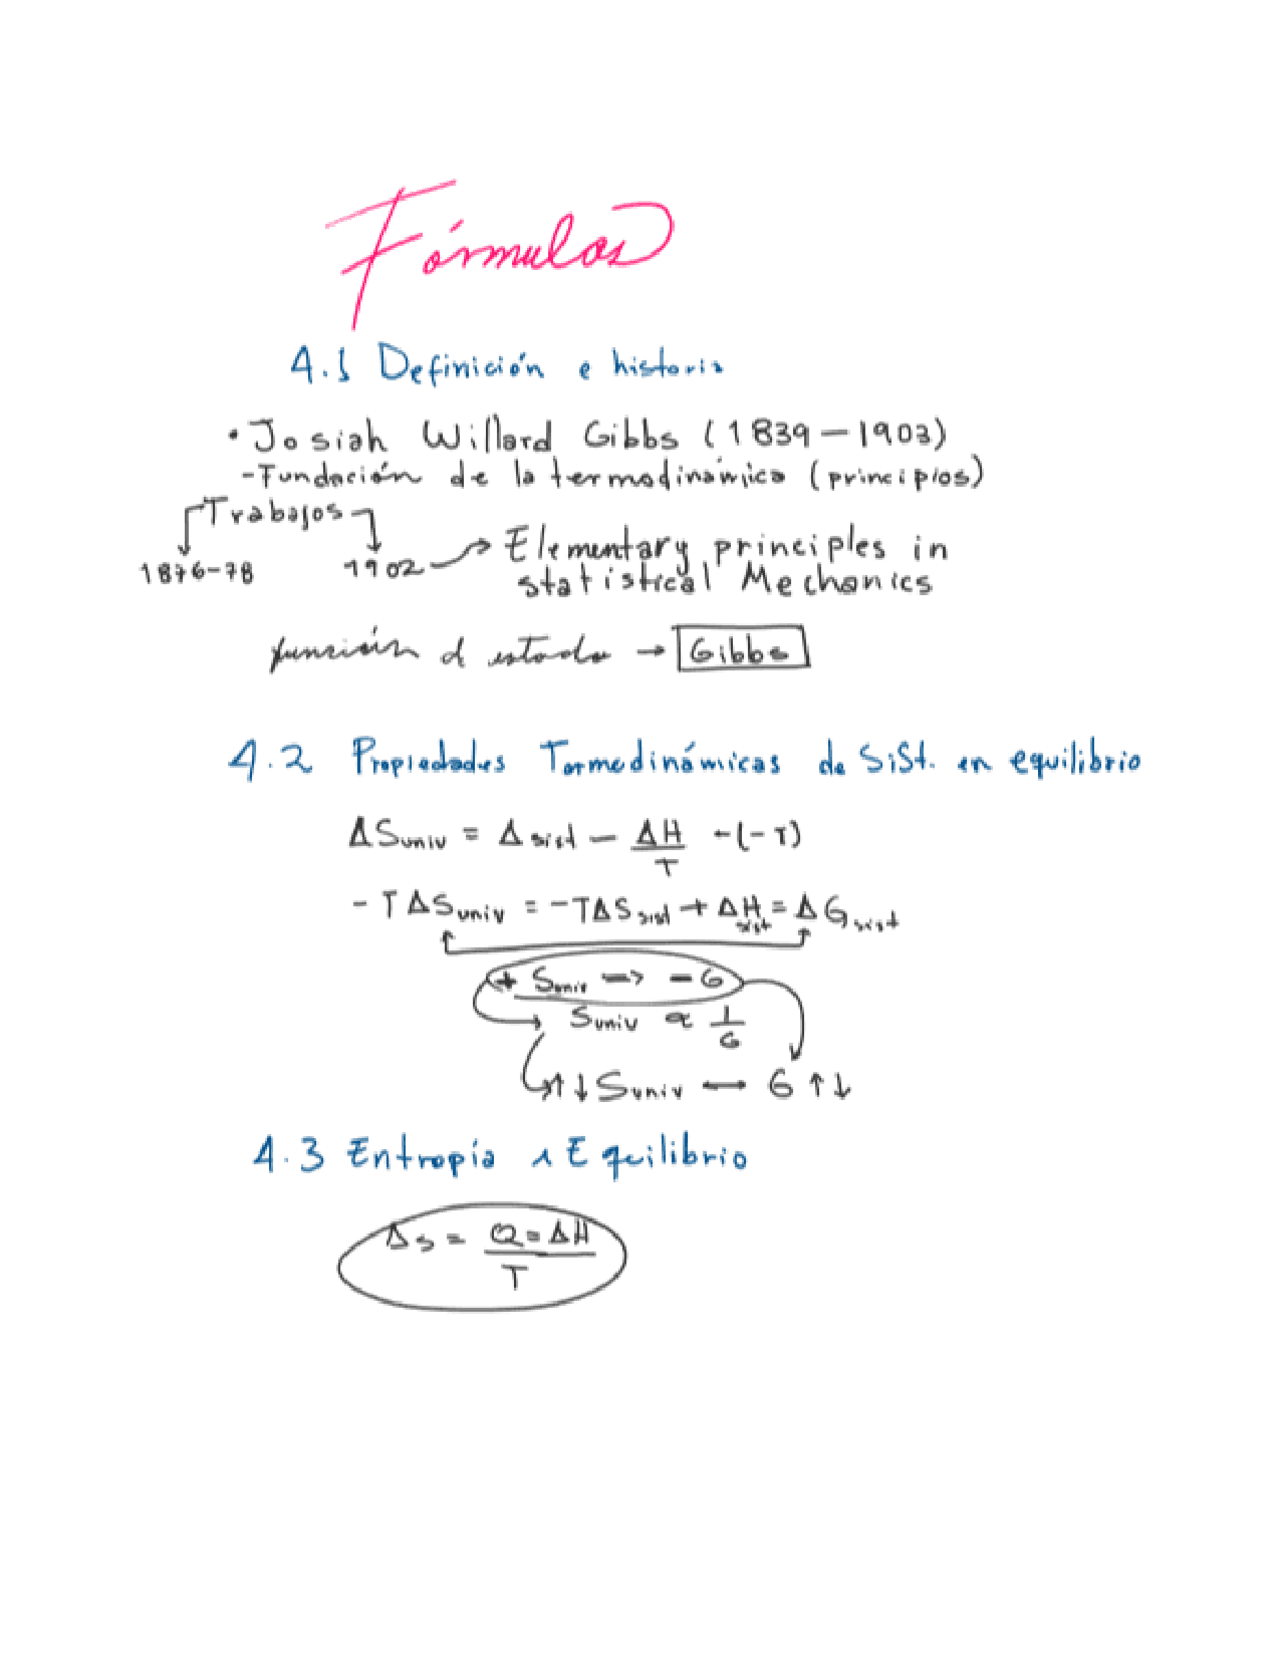 Fórmulas
4.1 Definición e historia
• Josiah Willard Gibbs (1839-1903)
- Fundación de la termodinámica (principios)
Trabajos
1876-78 1902 → Elementary principles in
statistical Mechanics
función d estado → Gibbs
4.2 Propiedades Termodinámicas de Sist. en equilibrio
ΔSuniv = Δsist - ΔH/T -(-T)
-TΔSuniv = -TΔSsist + ΔHsist = ΔGsist
+ Suniv → -G
Suniv ∝ 1/G
↑↓Suniv — G↑↓
4.3 Entropía Equilibrio
Δs = Q=ΔH/T